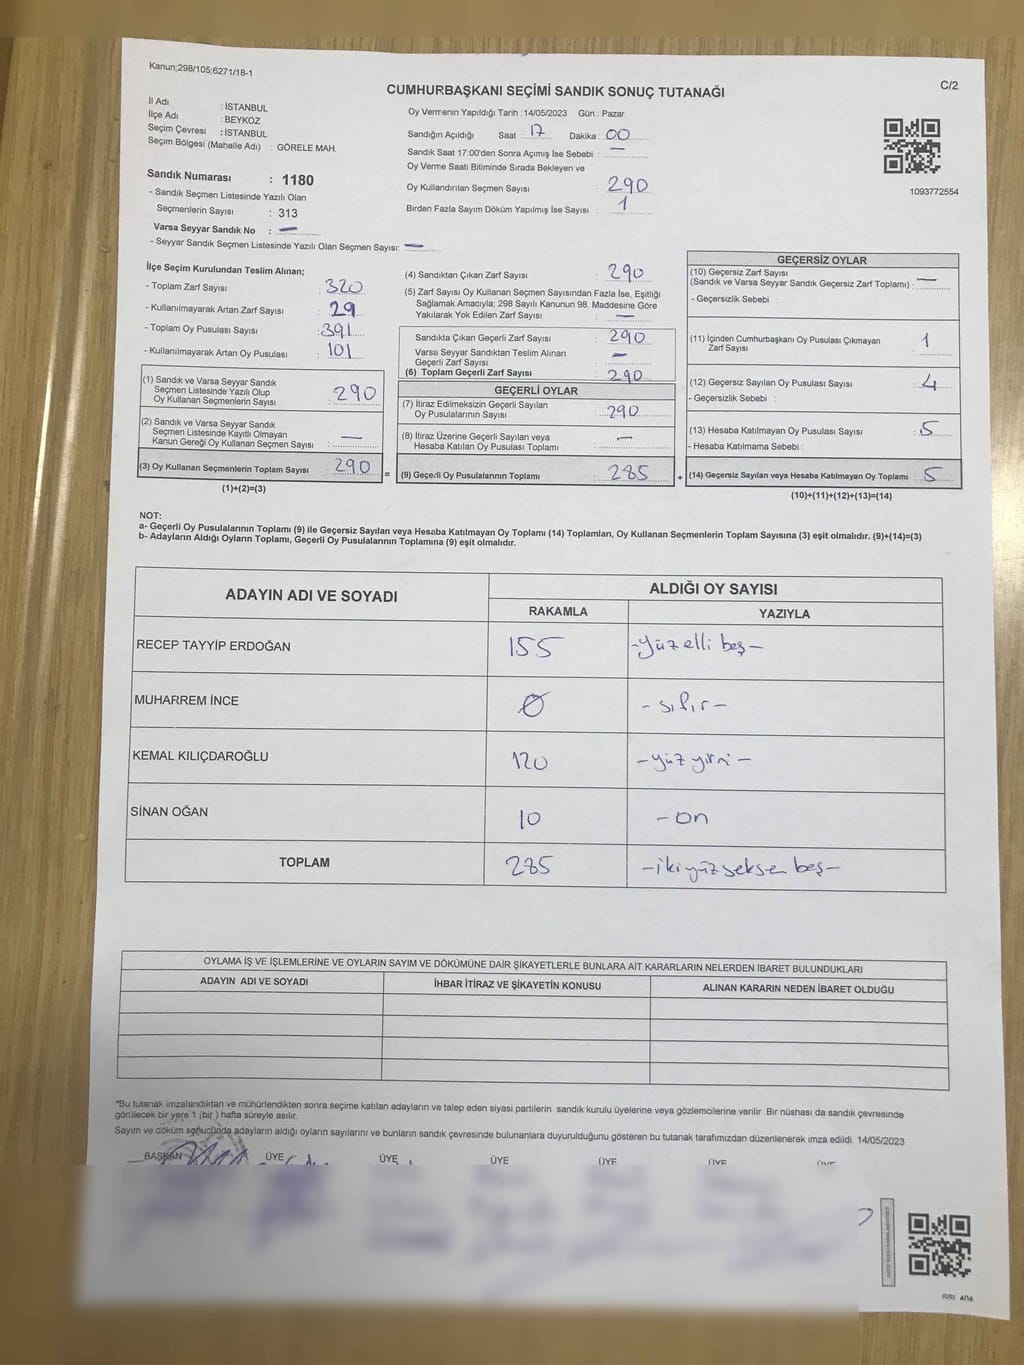 Kanun;298/105;6271/18-1
C/2
CUMHURBAŞKANI SEÇİMİ SANDIK SONUÇ TUTANAĞI
İl Adı : İSTANBUL
İlçe Adı : BEYKOZ
Seçim Çevresi : İSTANBUL
Seçim Bölgesi (Mahalle Adı) : GÖRELE MAH.
Sandık Numarası : 1180
- Sandık Seçmen Listesinde Yazılı Olan
Seçmenlerin Sayısı : 313
Varsa Seyyar Sandık No : —
- Seyyar Sandık Seçmen Listesinde Yazılı Olan Seçmen Sayısı: —
Oy Vermenin Yapıldığı Tarih :14/05/2023 Gün : Pazar
Sandığın Açıldığı Saat : 17 Dakika : 00
Sandık Saat 17:00'den Sonra Açımış İse Sebebi : —
Oy Verme Saati Bitiminde Sırada Bekleyen ve
Oy Kullandırılan Seçmen Sayısı : 290
Birden Fazla Sayım Döküm Yapılmış İse Sayısı : 1
1093772554
İlçe Seçim Kurulundan Teslim Alınan;
- Toplam Zarf Sayısı : 320
- Kullanılmayarak Artan Zarf Sayısı : 29
- Toplam Oy Pusulası Sayısı : 391
- Kullanılmayarak Artan Oy Pusulası : 101
(1) Sandık ve Varsa Seyyar Sandık
Seçmen Listesinde Yazılı Olup
Oy Kullanan Seçmenlerin Sayısı : 290
(2) Sandık ve Varsa Seyyar Sandık
Seçmen Listesinde Kayıtlı Olmayan
Kanun Gereği Oy Kullanan Seçmen Sayısı : —
(3) Oy Kullanan Seçmenlerin Toplam Sayısı : 290
(1)+(2)=(3)
(4) Sandıktan Çıkan Zarf Sayısı : 290
(5) Zarf Sayısı Oy Kullanan Seçmen Sayısından Fazla İse, Eşitliği
Sağlamak Amacıyla; 298 Sayılı Kanunun 98. Maddesine Göre
Yakılarak Yok Edilen Zarf Sayısı : —
Sandıkta Çıkan Geçerli Zarf Sayısı : 290
Varsa Seyyar Sandıktan Teslim Alınan
(Geçerli Zarf Sayısı) : —
(6) Toplam Geçerli Zarf Sayısı : 290
GEÇERLİ OYLAR
(7) İtiraz Edilmeksizin Geçerli Sayılan
Oy Pusulalarının Sayısı : 290
(8) İtiraz Üzerine Geçerli Sayılan veya
Hesaba Katılan Oy Pusulası Toplamı : —
= (9) Geçerli Oy Pusulalarının Toplamı : 285 +
GEÇERSİZ OYLAR
(10) Geçersiz Zarf Sayısı
(Sandık ve Varsa Seyyar Sandık Geçersiz Zarf Toplamı) : —
- Geçersizlik Sebebi :
(11) İçinden Cumhurbaşkanı Oy Pusulası Çıkmayan
Zarf Sayısı : 1
(12) Geçersiz Sayılan Oy Pusulası Sayısı : 4
- Geçersizlik Sebebi :
(13) Hesaba Katılmayan Oy Pusulası Sayısı : 5
- Hesaba Katılmama Sebebi :
(14) Geçersiz Sayılan veya Hesaba Katılmayan Oy Toplamı : 5
(10)+(11)+(12)+(13)=(14)
NOT:
a- Geçerli Oy Pusulalarının Toplamı (9) ile Geçersiz Sayılan veya Hesaba Katılmayan Oy Toplamı (14) Toplamları, Oy Kullanan Seçmenlerin Toplam Sayısına (3) eşit olmalıdır. (9)+(14)=(3)
b- Adayların Aldığı Oyların Toplamı, Geçerli Oy Pusulalarının Toplamına (9) eşit olmalıdır.
ADAYIN ADI VE SOYADI
ALDIĞI OY SAYISI
RAKAMLA YAZIYLA
RECEP TAYYİP ERDOĞAN 155 -yüz elli beş-
MUHARREM İNCE 0 -sıfır-
KEMAL KILIÇDAROĞLU 120 -yüz yirmi-
SİNAN OĞAN 10 -on
TOPLAM 285 -iki yüz seksen beş-
OYLAMA İŞ VE İŞLEMLERİNE VE OYLARIN SAYIM VE DÖKÜMÜNE DAİR ŞİKAYETLERLE BUNLARA AİT KARARLARIN NELERDEN İBARET BULUNDUKLARI
ADAYIN ADI VE SOYADI İHBAR İTİRAZ VE ŞİKAYETİN KONUSU ALINAN KARARIN NEDEN İBARET OLDUĞU
*Bu tutanak imzalandıktan ve mühürlendikten sonra seçime katılan adayların ve talep eden siyasi partilerin sandık kurulu üyelerine veya gözlemcilerine verilir .Bir nüshası da sandık çevresinde
görülecek bir yere 1 (bir ) hafta süreyle asılır.
Sayım ve döküm sonucunda adayların aldığı oyların sayılarını ve bunların sandık çevresinde bulunanlara duyurulduğunu gösteren bu tutanak tarafımızdan düzenlenerek imza edildi. 14/05/2023
BAŞKAN ÜYE ÜYE ÜYE ÜYE ÜYE ÜYE